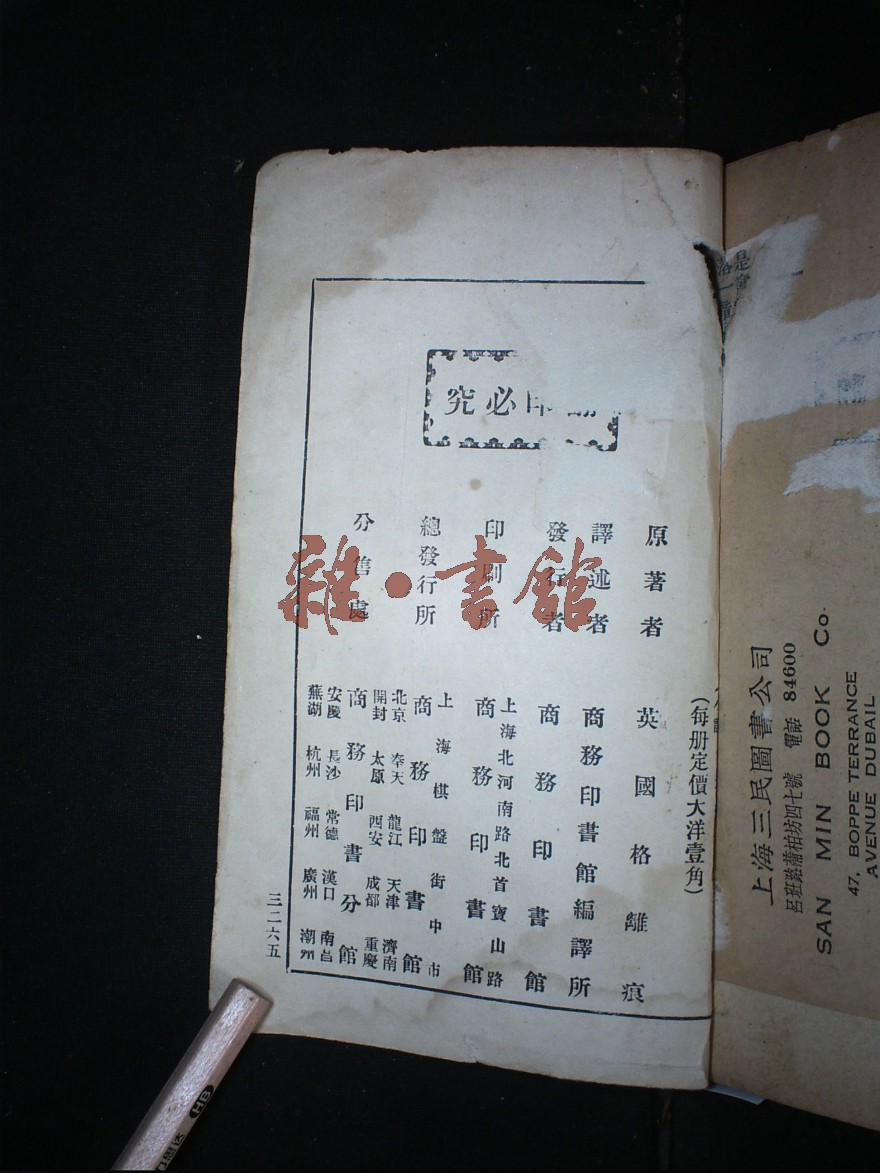 印必究
(每册定價大洋壹角)
原著者 英國格離痕
譯述者 商務印書館編譯所
發行者 商務印書館
印刷所 上海北河南路北首寶山路
商務印書館
總發行所 上海棋盤街中市
商務印書館
分售處 北京 奉天 龍江 天津 濟南
開封 太原 西安 成都 重慶
商務印書分館
安慶 長沙 常德 漢口 南昌
蕪湖 杭州 福州 廣州 潮州
三二六五
雜·書館
上海三民圖書公司
呂班路蒲柏坊四七號 電話 84600
SAN MIN BOOK Co.
47, BOPPE TERRANCE
AVENUE DUBAIL
HB